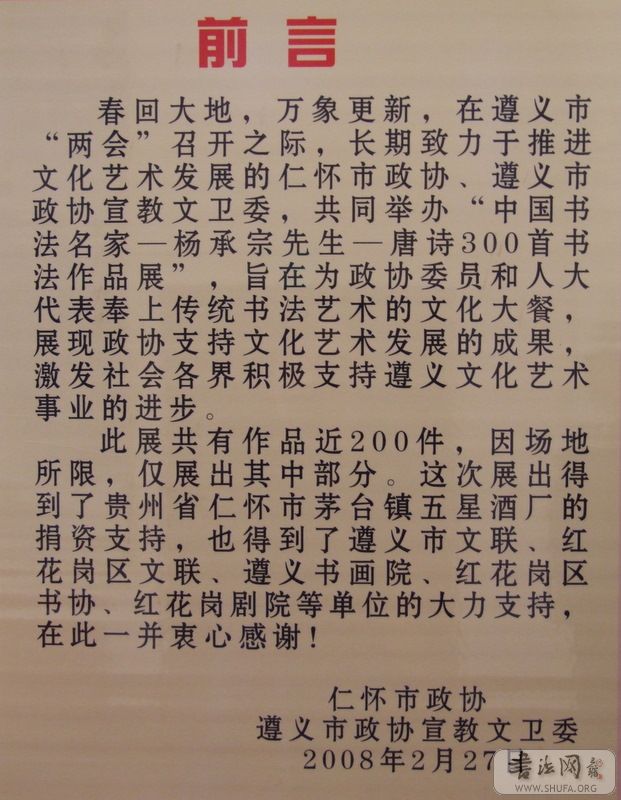 前言
春回大地，万象更新，在遵义市
“两会”召开之际，长期致力于推进
文化艺术发展的仁怀市政协、遵义市
政协宣教文卫委，共同举办“中国书
法名家—杨承宗先生—唐诗300首书
法作品展”，旨在为政协委员和人大
代表奉上传统书法艺术的文化大餐，
展现政协支持文化艺术发展的成果，
激发社会各界积极支持遵义文化艺术
事业的进步。
此展共有作品近200件，因场地
所限，仅展出其中部分。这次展出得
到了贵州省仁怀市茅台镇五星酒厂的
捐资支持，也得到了遵义市文联、红
花岗区文联、遵义书画院、红花岗区
书协、红花岗剧院等单位的大力支持，
在此一并衷心感谢！
仁怀市政协
遵义市政协宣教文卫委
2008年2月27日
书法网
WWW.SHUFA.ORG